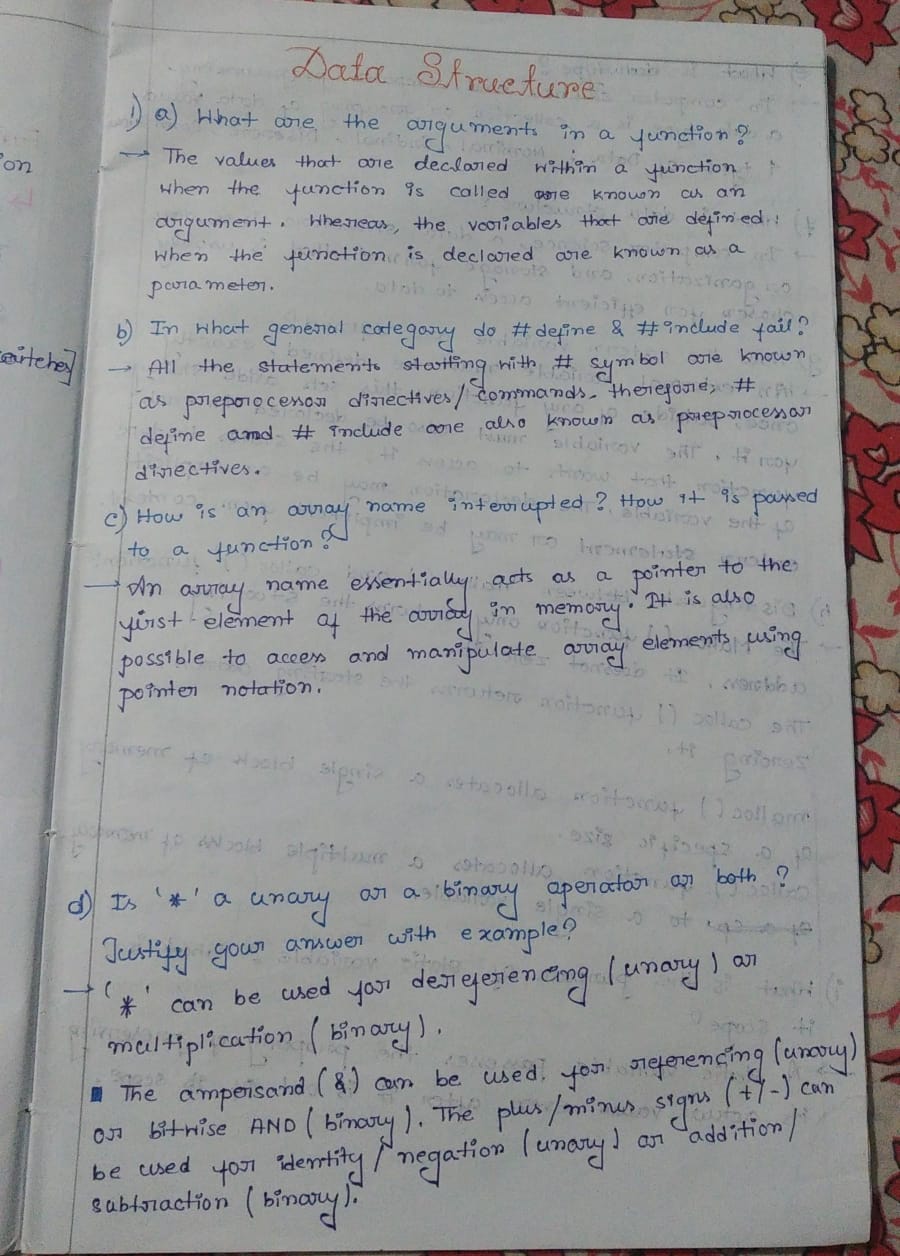 Data Structure
1) a) What are the arguments in a function?
→ The values that are declared within a function
when the function is called are known as an
argument. Whereas, the variables that are defined
when the function is declared are known as a
parameter.
b) In what general category do #define & #include fail?
→ All the statements starting with # symbol are known
as preporocessor directives/commands. therefore, #
define and # include are also known as preprocessor
directives.
c) How is an array name interrupted? How it is passed
to a function?
→ An array name essentially acts as a pointer to the
first element of the array in memory. It is also
possible to access and manipulate array elements using
pointer notation.
d) Is '*' a unary or a binary operator or both?
Justify your answer with example?
→ '*' can be used for dereferencing (unary) or
multiplication (binary).
■ The ampersand (&) can be used for referencing (unary)
or bitwise AND (binary). The plus/minus signs (+/-) can
be used for identity/negation (unary) or addition/
subtraction (binary).
on